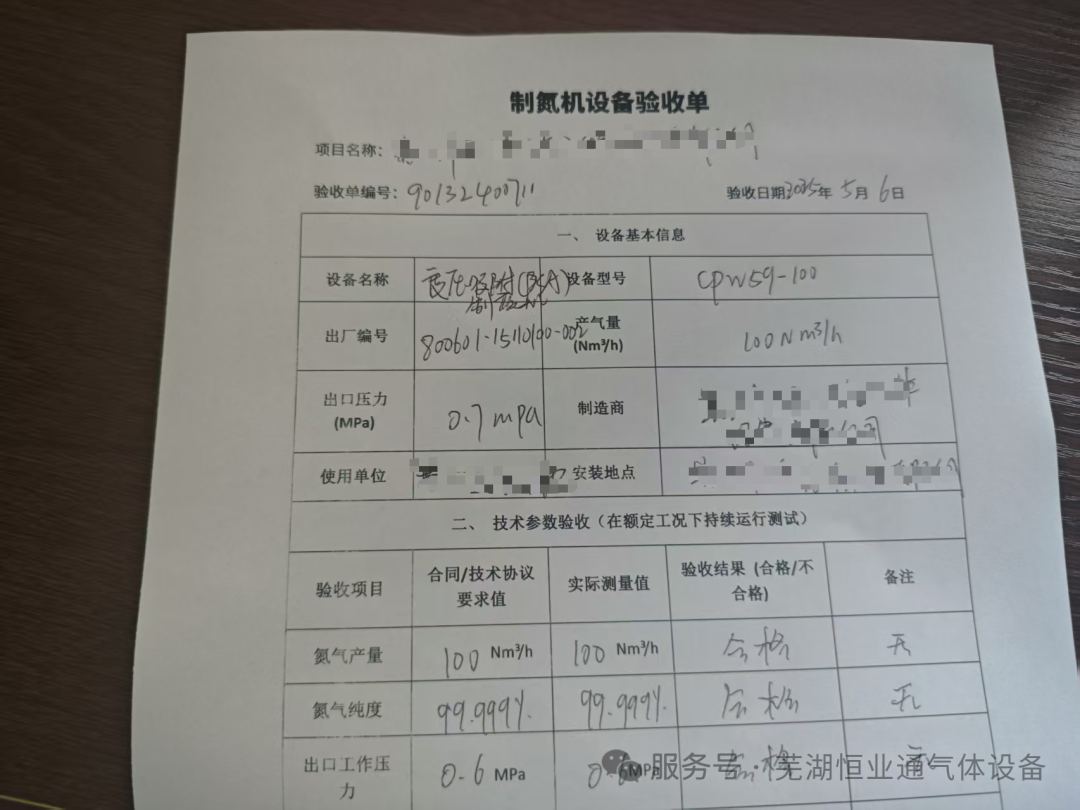 制氮机设备验收单
项目名称：
验收单编号：90132400711
验收日期2025年 5月 6日
一、 设备基本信息
设备名称 变压吸附(PSA)制氮机 设备型号 CPN59-100
出厂编号 800601-15110100-002 产气量(Nm³/h) 100Nm³/h
出口压力(MPa) 0.7mpa 制造商
使用单位 安装地点
二、 技术参数验收（在额定工况下持续运行测试）
验收项目 合同/技术协议要求值 实际测量值 验收结果 (合格/不合格) 备注
氮气产量 100 Nm³/h 100 Nm³/h 合格 无
氮气纯度 99.999% 99.999% 合格 无
出口工作压力 0.6 MPa 0.6 MPa 合格 无
服务号·芜湖恒业通气体设备